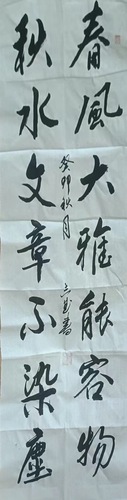 春風大雅能容物
秋水文章不染塵
癸卯秋月
志武書